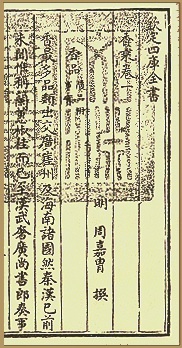 欽定四庫全書
香乘卷一
明 周嘉胄 撰
香品
香最多品類出交廣崖州及海南諸國然秦漢已前
未聞惟稱蘭蕙椒桂而已至漢武奢廣尚書郎奏事